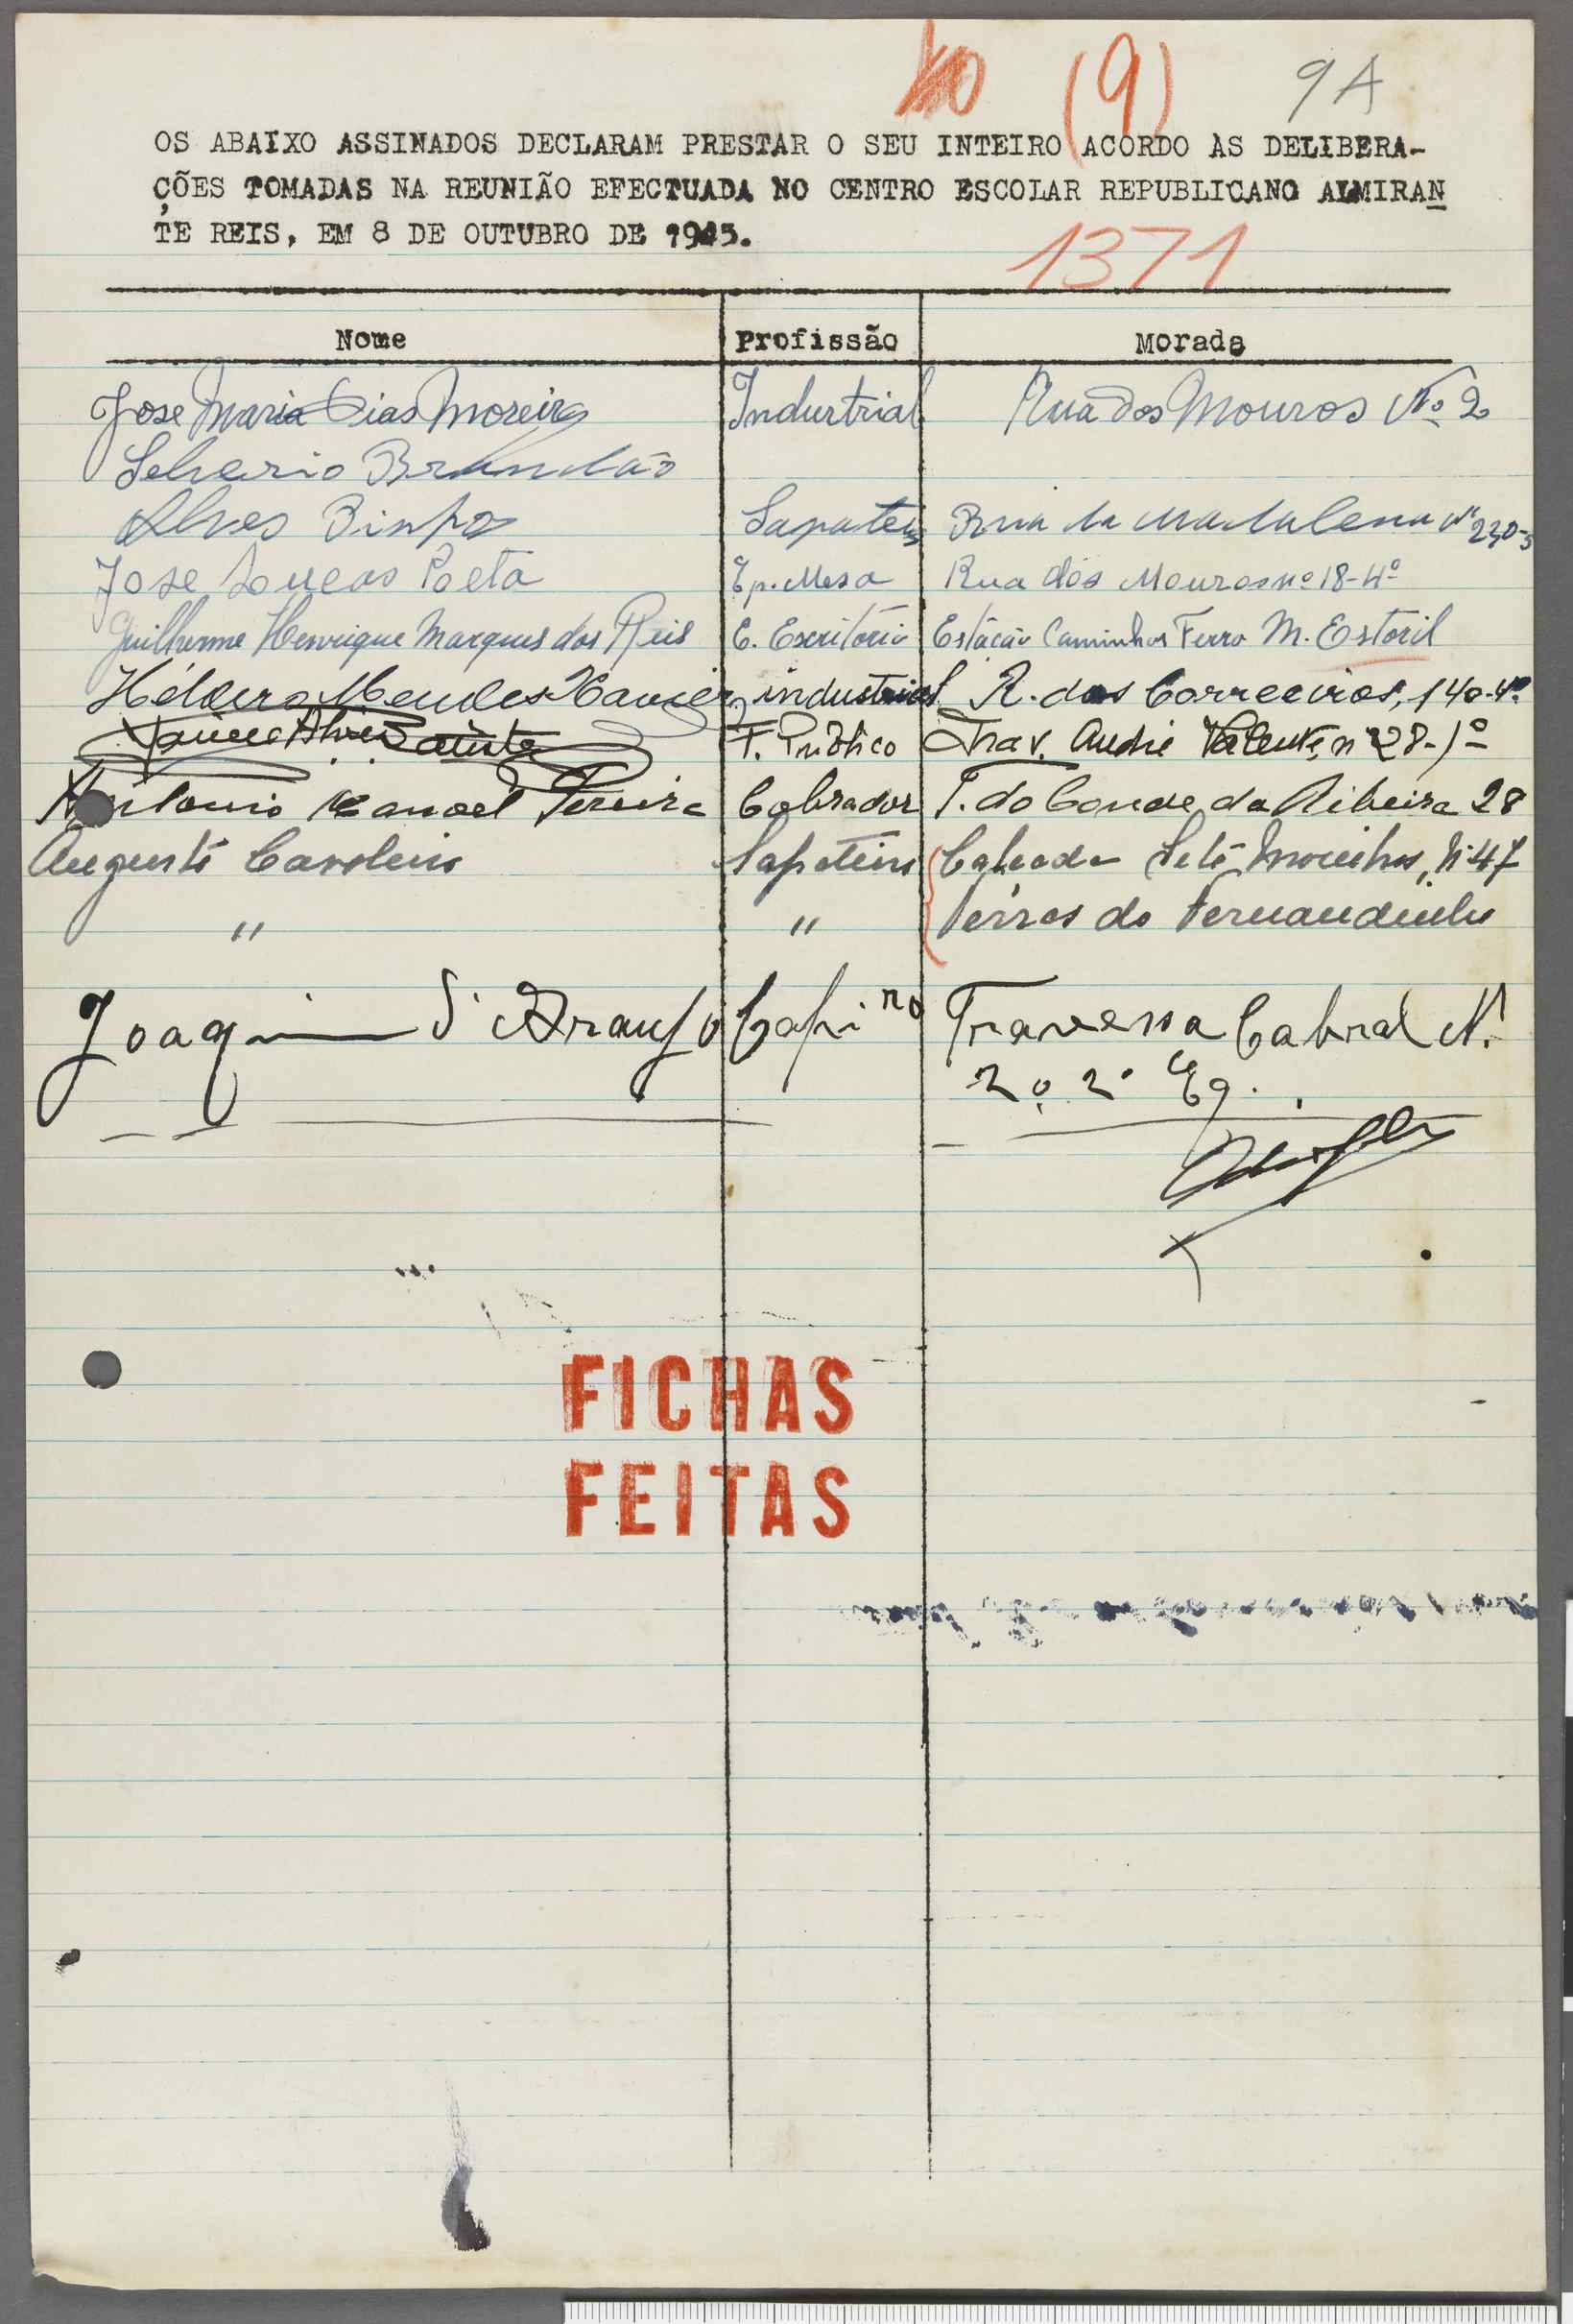 10 (9) 9A
OS ABAIXO ASSINADOS DECLARAM PRESTAR O SEU INTEIRO ACORDO ÀS DELIBERA-
ÇÕES TOMADAS NA REUNIÃO EFECTUADA NO CENTRO ESCOLAR REPUBLICANO ALMIRAN
TE REIS, EM 8 DE OUTUBRO DE 1945.
1371
Nome Profissão Morada
Jose Maria Dias Moreira Industrial Rua dos Mouros Nº 2
Brandão
Alves Sapateiro Rua da Madalena Nº 230-5
Jose Loucas Poeta Ep. Mesa Rua dos Mouros nº 18-4º
Guilherme Henrique Marques dos Reis E. Escritório Estação Caminhos Ferro M. Estoril
Heldero Mendes Xavier industrial R. dos Correeiros, 140-4º
F. Publico Trav. André Valente, nº 28-1º
Antonio Manoel Pereira Cobrador T. do Conde da Ribeira 28
Augusto Caroleino Sapateiro Calçada Sete Moinhos, Nº 47
" " Terras do Fernandinho
Joaquim d'Araujo Travessa Cabral N.
20, 2º Eq.
FICHAS
FEITAS